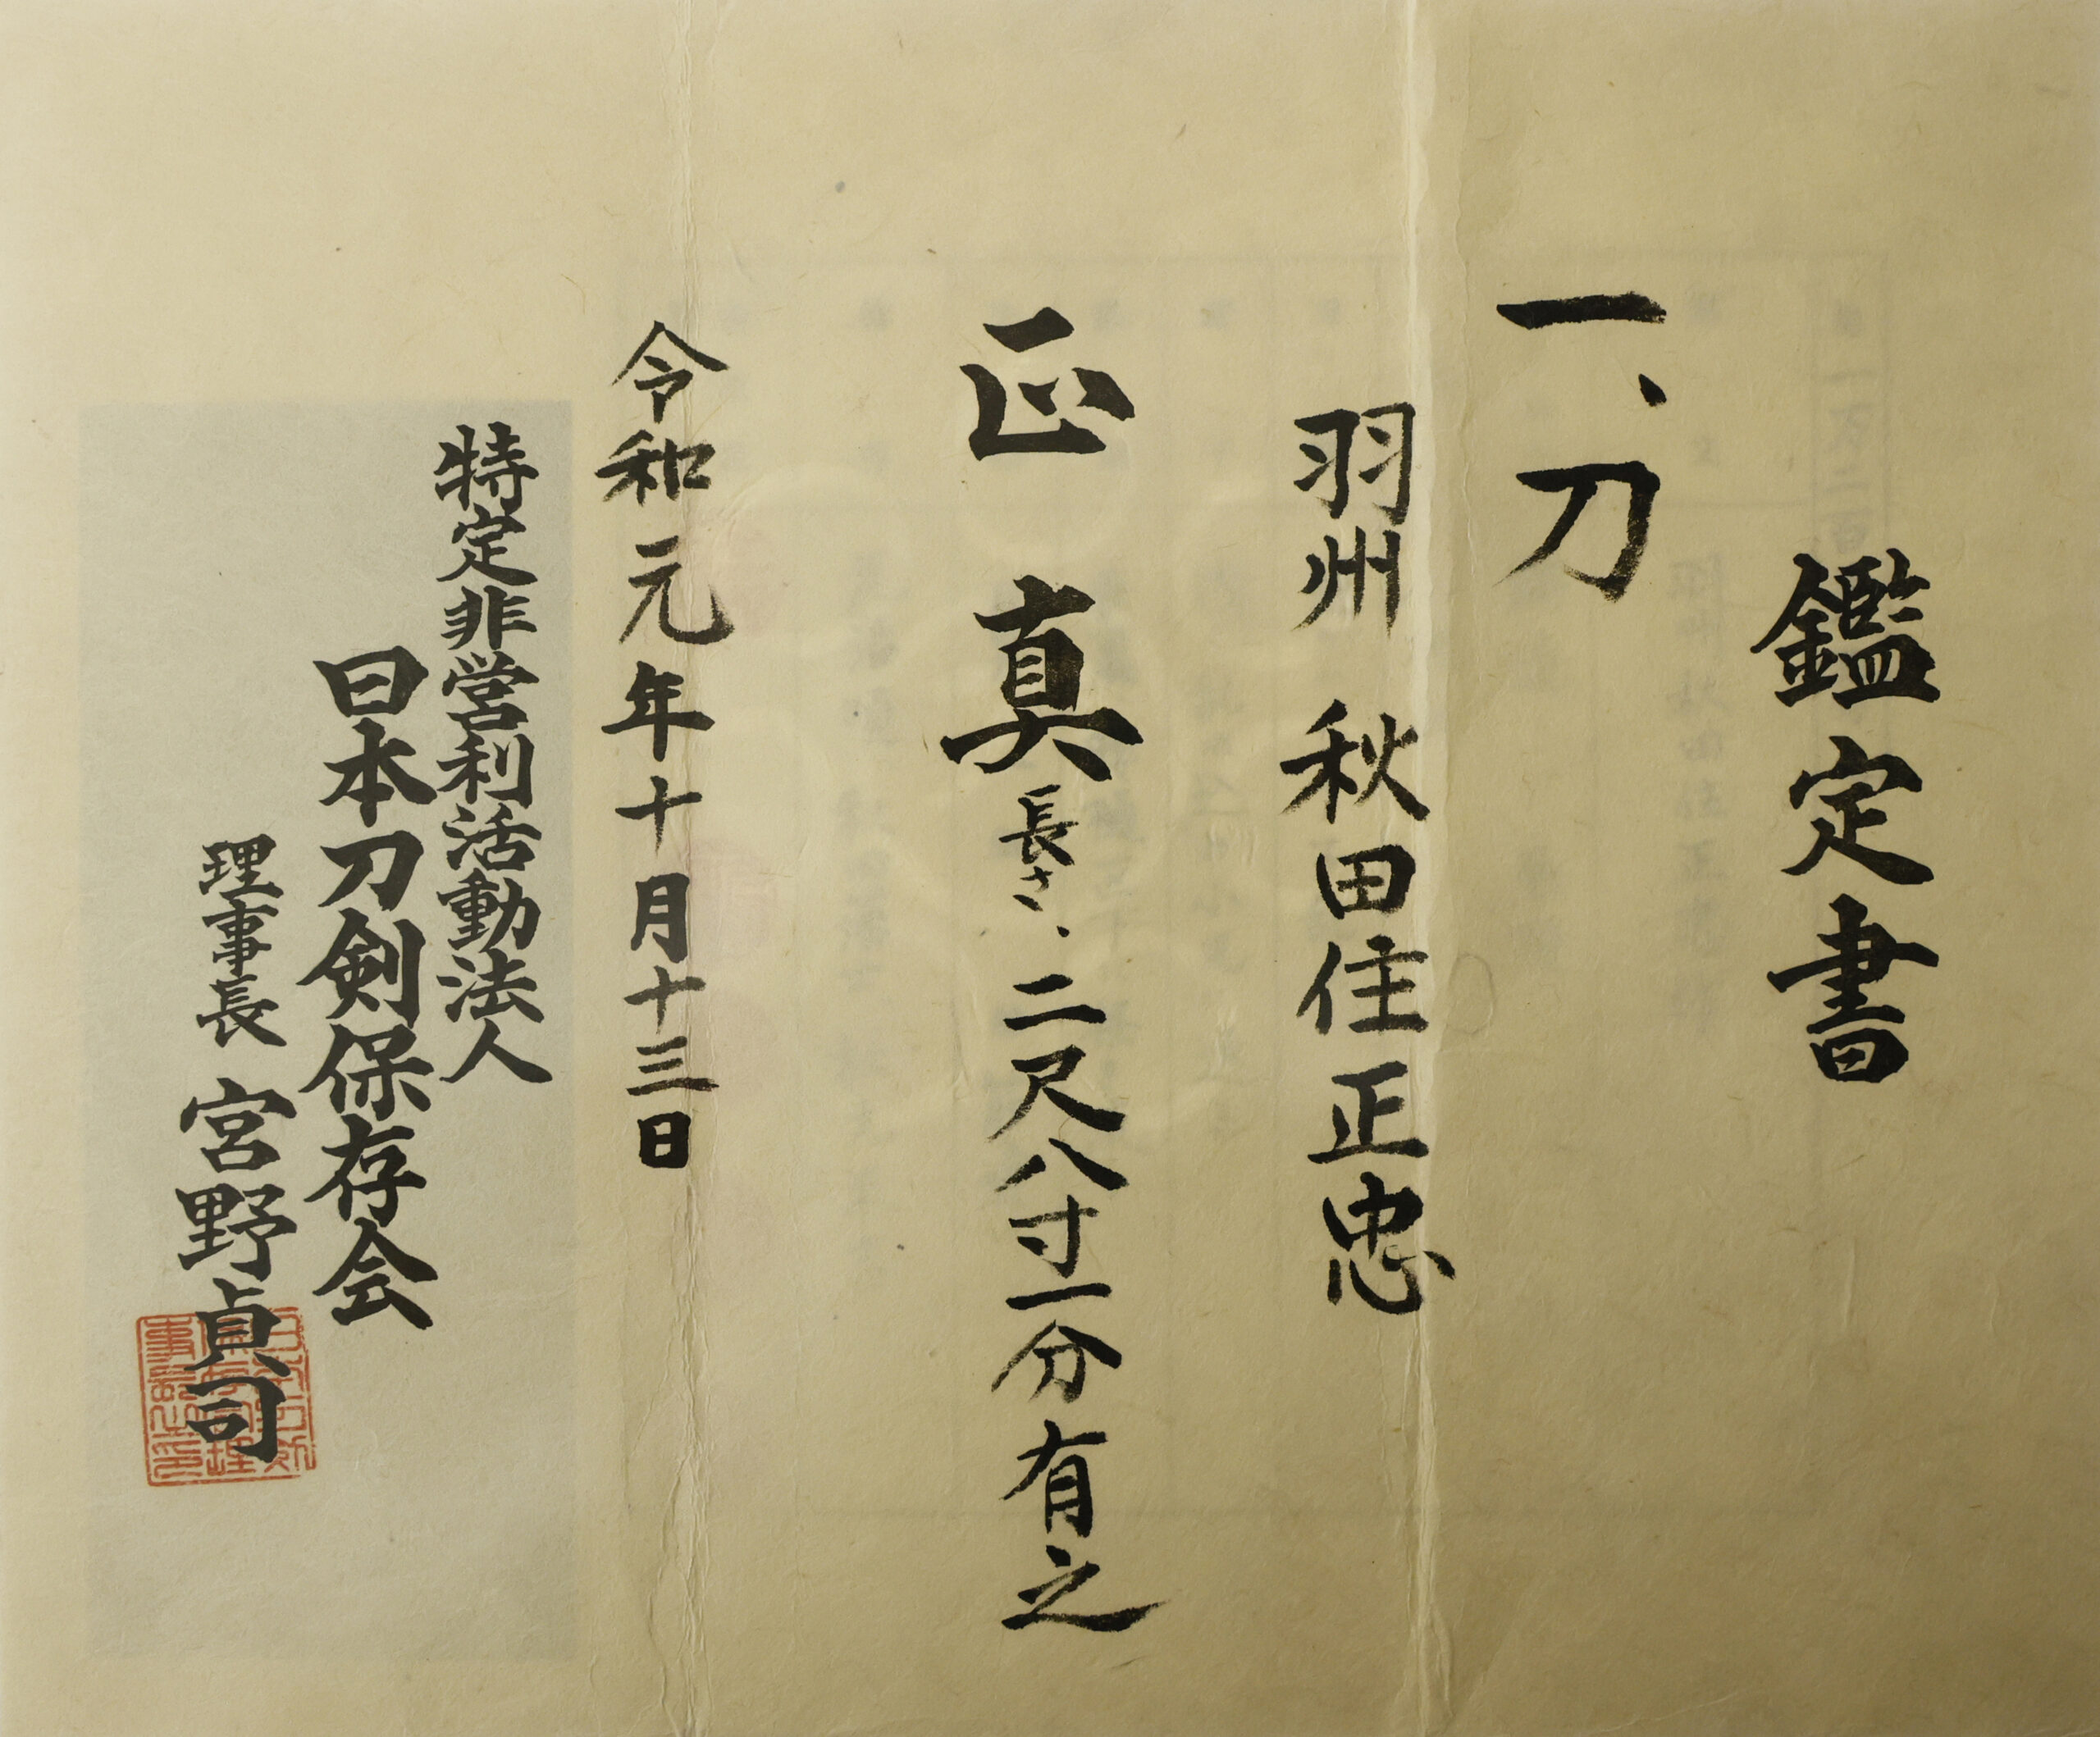 鑑定書
一、刀
羽州 秋田住正忠
正真 長さ、二尺八寸一分有之
令和元年十月十三日
特定非営利活動法人
日本刀剣保存会
理事長 宮野貞司